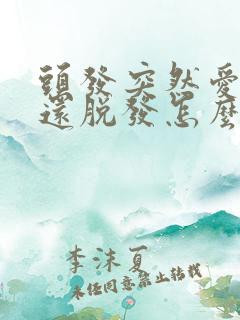 頭發突然愛
還脫發怎麽
李沫夏
未經同意禁止轉載